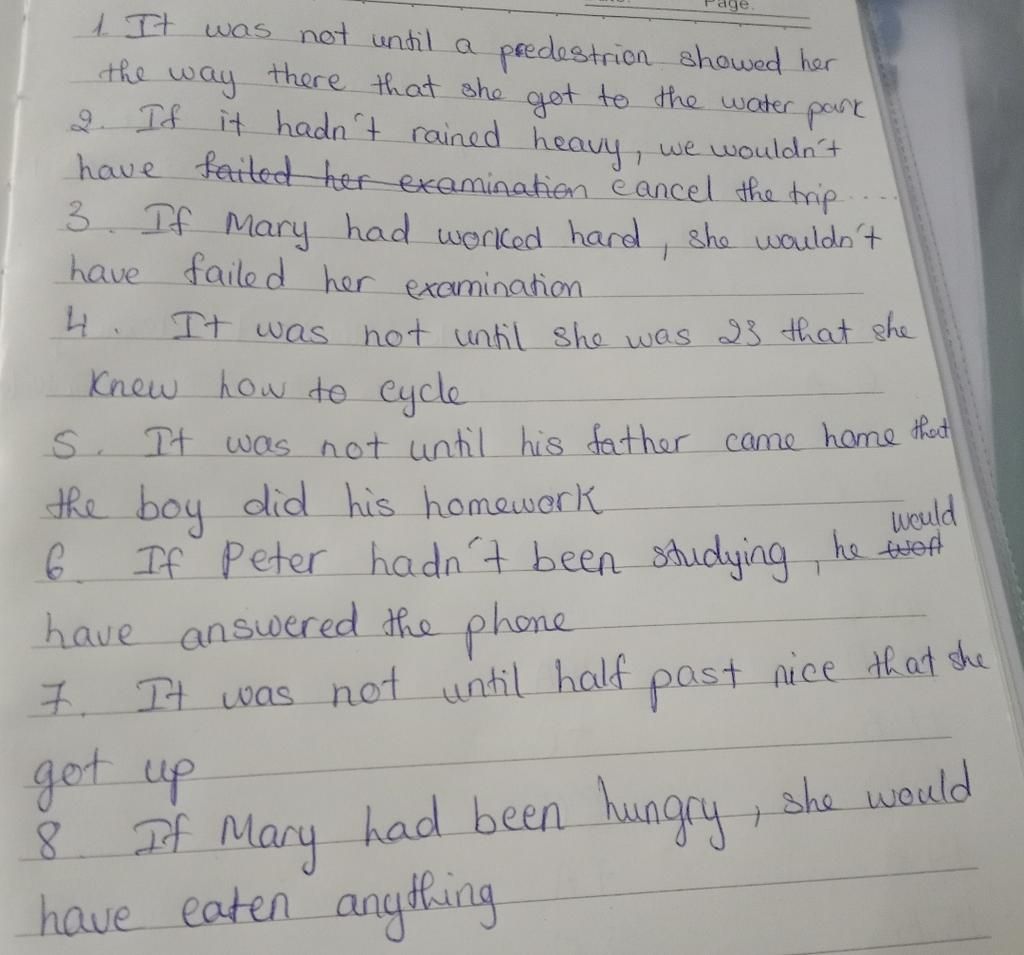 Page.
1. It was not until a predestrion showed her
the way there that she got to the water park
2. If it hadn't rained heavy, we wouldn't
have failed her examination cancel the trip ....
3. If Mary had worked hard, she wouldn't
have failed her examination
4. It was not until she was 23 that she
knew how to cycle
5. It was not until his father came home that
the boy did his homework
6. If Peter hadn't been studying, he would
have answered the phone
7. It was not until half past nice that she
got up
8. If Mary had been hungry, she would
have eaten anything